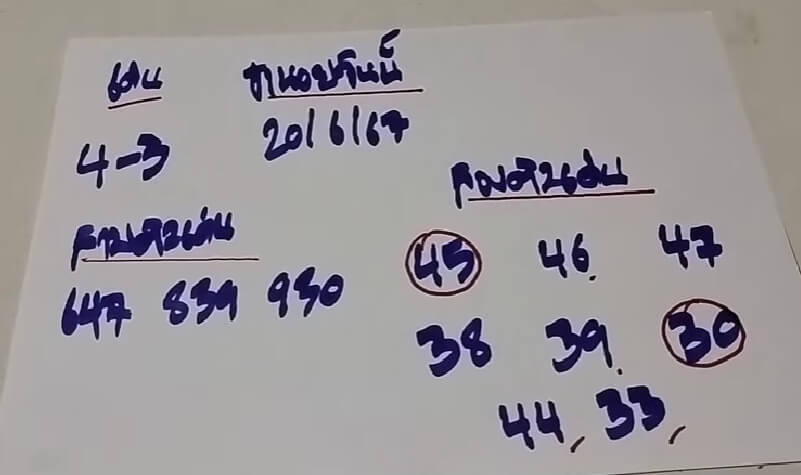 เด่น ฮานอยวันนี้
4-3 20/6/67
สามตัวเด่น
647 839 930
สองตัวเด่น
45 46 47
38 39 30
44, 33,